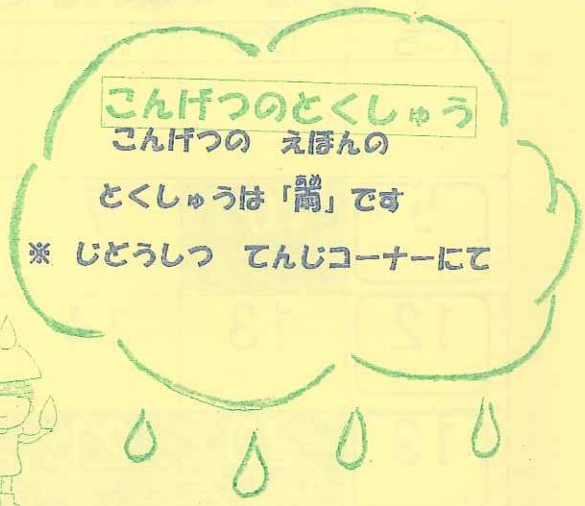 こんげつのとくしゅう
こんげつの えほんの
とくしゅうは「雨」です
※ じどうしつ てんじコーナーにて